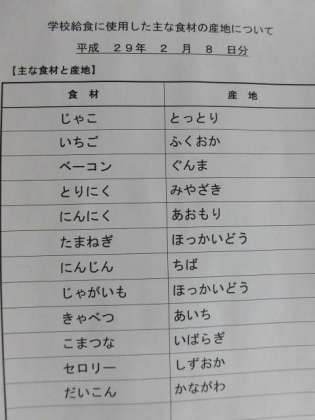 学校給食に使用した主な食材の産地について
平成 29年 2 月 8 日分
【主な食材と産地】
食 材 産 地
じゃこ とっとり
いちご ふくおか
ベーコン ぐんま
とりにく みやざき
にんにく あおもり
たまねぎ ほっかいどう
にんじん ちば
じゃがいも ほっかいどう
きゃべつ あいち
こまつな いばらぎ
セロリー しずおか
だいこん かながわ